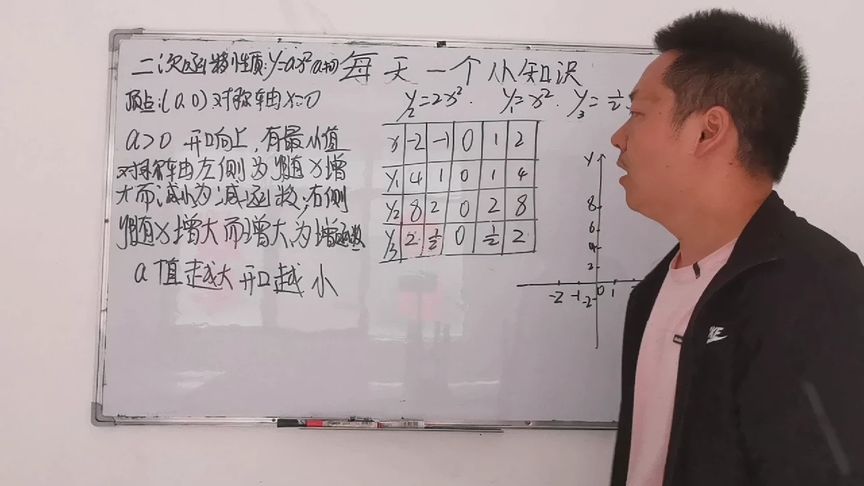 二次函数性质:y=ax²(a≠0)
每天一个小知识
顶点:(0,0)对称轴x=0
y₂=2x². y₁=x². y₃=½
a>0 开口向上,有最小值
对称轴左侧为y随x增
大而减小为减函数;右侧
y随x增大而增大,为增函数
a值越大开口越小
x -2 -1 0 1 2
y₁ 4 1 0 1 4
y₂ 8 2 0 2 8
y₃ 2 ½ 0 ½ 2
y
8
6
4
2
-2 -1 0 1
-2
NIKE